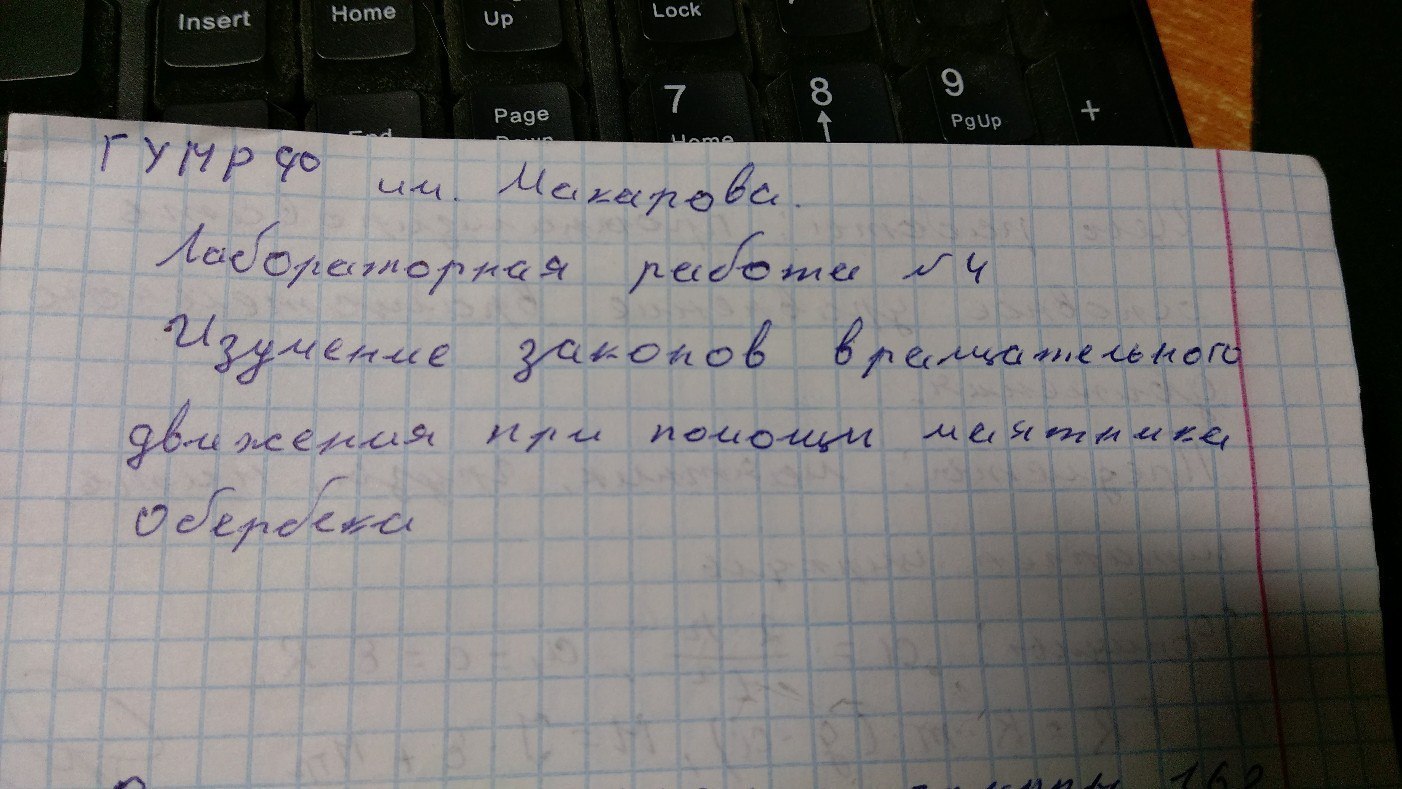 Insert
Home
Up
Lock
Page
7
8
9
PgUp
+
ГУМРФ им. Макарова.
Лабораторная работа №4
Изучение законов вращательного
движения при помощи маятника
Обербека
группы 162